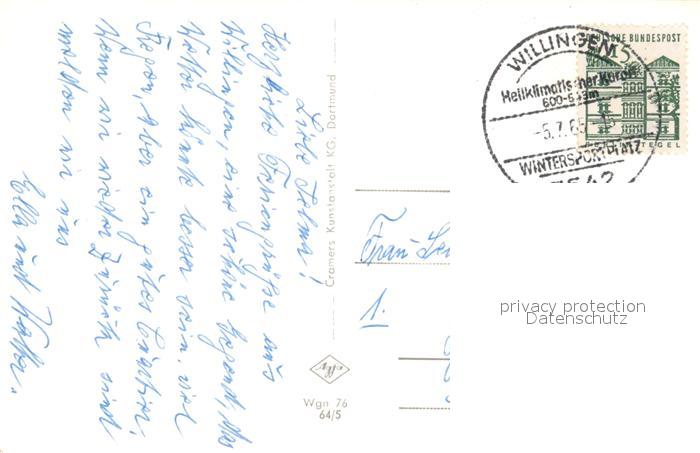 Liebe Selma!
Herzliche Feriengrüße aus
Willingen, eine schöne Gegend, das
Wetter könnte besser sein. viel
Regen, Aber ein gutes Quartier,
Wenn wir wieder zurück sind
melden wir uns
Ella und Walter.
Cramers Kunstanstalt KG, Dortmund
WILLINGEN
Heilklimatischer Kurort
-5.7.65
WINTERSPORTPLATZ
3542
DEUTSCHE BUNDESPOST
TEGEL
Frau
1.
privacy protection
Datenschutz
Wgn 76
64/5